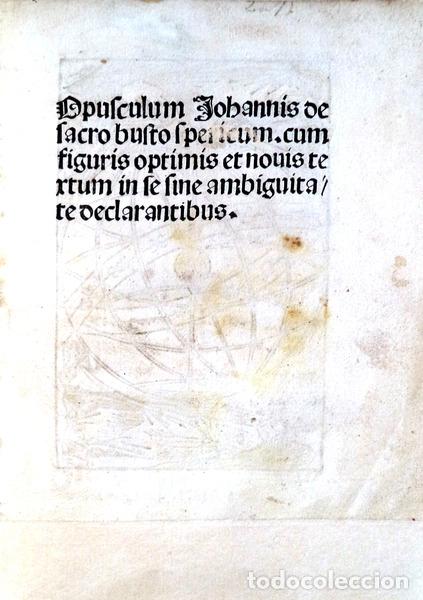 Opusculum Johannis de
sacro busto spericum.cum
figuris optimis et nouis te
xtum in se sine ambiguita/
te declarantibus.
todocoleccion